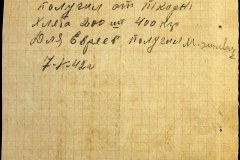 получил от
Хлеба 200 шт 400 кг
Для Евреев получил
7-V-42г